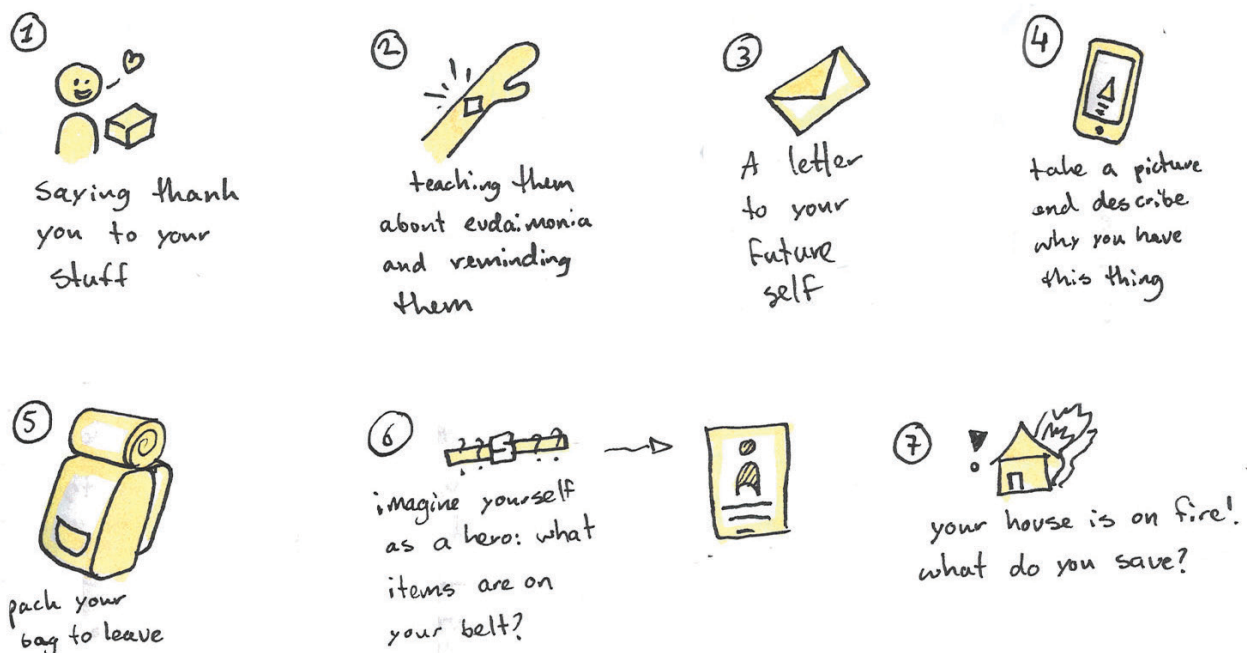 1
saying thank
you to your
stuff
2
teaching them
about eudaimonia
and reminding
them
3
A letter
to your
future
self
4
take a picture
and describe
why you have
this thing
5
pack your
bag to leave
6
? ? ? ?
imagine yourself
as a hero: what
items are on
your belt?
7
!
your house is on fire!
what do you save?